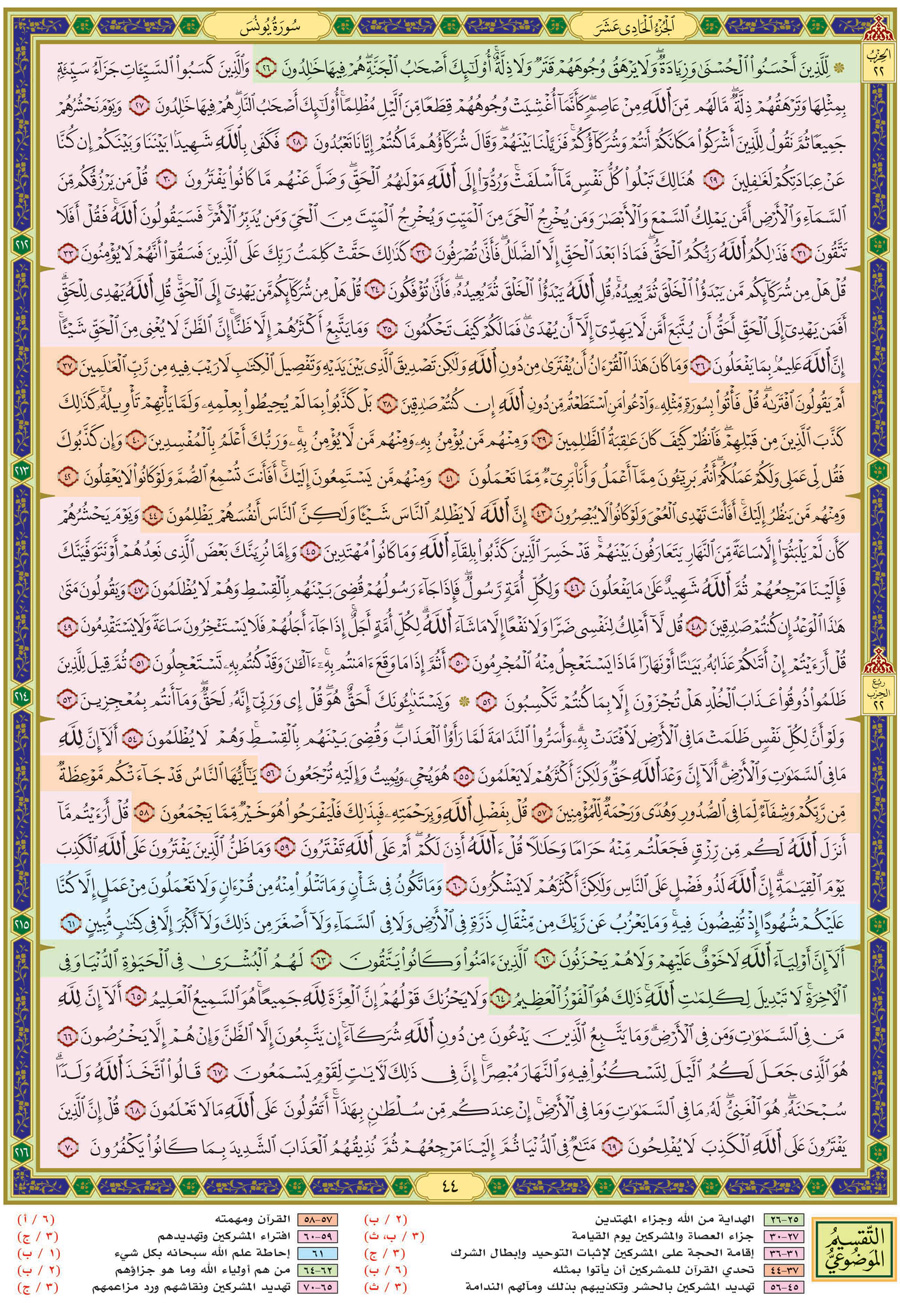 سُورَةُ يُونُسَ
الجُزْءُ الحَادِى عَشَرَ
الحِزْبُ ٢٢
۞ لِّلَّذِينَ أَحْسَنُوا۟ ٱلْحُسْنَىٰ وَزِيَادَةٌ ۖ وَلَا يَرْهَقُ وُجُوهَهُمْ قَتَرٌ وَلَا ذِلَّةٌ ۚ أُو۟لَـٰٓئِكَ أَصْحَـٰبُ ٱلْجَنَّةِ ۖ هُمْ فِيهَا خَـٰلِدُونَ ٢٦ وَٱلَّذِينَ كَسَبُوا۟ ٱلسَّيِّـَٔاتِ جَزَآءُ سَيِّئَةٍۭ
بِمِثْلِهَا وَتَرْهَقُهُمْ ذِلَّةٌ ۖ مَّا لَهُم مِّنَ ٱللَّهِ مِنْ عَاصِمٍ ۖ كَأَنَّمَآ أُغْشِيَتْ وُجُوهُهُمْ قِطَعًا مِّنَ ٱلَّيْلِ مُظْلِمًا ۚ أُو۟لَـٰٓئِكَ أَصْحَـٰبُ ٱلنَّارِ ۖ هُمْ فِيهَا خَـٰلِدُونَ ٢٧ وَيَوْمَ نَحْشُرُهُمْ
جَمِيعًا ثُمَّ نَقُولُ لِلَّذِينَ أَشْرَكُوا۟ مَكَانَكُمْ أَنتُمْ وَشُرَكَآؤُكُمْ ۚ فَزَيَّلْنَا بَيْنَهُمْ ۖ وَقَالَ شُرَكَآؤُهُم مَّا كُنتُمْ إِيَّانَا تَعْبُدُونَ ٢٨ فَكَفَىٰ بِٱللَّهِ شَهِيدًۢا بَيْنَنَا وَبَيْنَكُمْ إِن كُنَّا
عَنْ عِبَادَتِكُمْ لَغَـٰفِلِينَ ٢٩ هُنَالِكَ تَبْلُوا۟ كُلُّ نَفْسٍ مَّآ أَسْلَفَتْ ۚ وَرُدُّوٓا۟ إِلَى ٱللَّهِ مَوْلَىٰهُمُ ٱلْحَقِّ ۖ وَضَلَّ عَنْهُم مَّا كَانُوا۟ يَفْتَرُونَ ٣٠ قُلْ مَن يَرْزُقُكُم مِّنَ
ٱلسَّمَآءِ وَٱلْأَرْضِ أَمَّن يَمْلِكُ ٱلسَّمْعَ وَٱلْأَبْصَـٰرَ وَمَن يُخْرِجُ ٱلْحَىَّ مِنَ ٱلْمَيِّتِ وَيُخْرِجُ ٱلْمَيِّتَ مِنَ ٱلْحَىِّ وَمَن يُدَبِّرُ ٱلْأَمْرَ ۚ فَسَيَقُولُونَ ٱللَّهُ ۚ فَقُلْ أَفَلَا
تَتَّقُونَ ٣١ فَذَٰلِكُمُ ٱللَّهُ رَبُّكُمُ ٱلْحَقُّ ۖ فَمَاذَا بَعْدَ ٱلْحَقِّ إِلَّا ٱلضَّلَـٰلُ ۖ فَأَنَّىٰ تُصْرَفُونَ ٣٢ كَذَٰلِكَ حَقَّتْ كَلِمَتُ رَبِّكَ عَلَى ٱلَّذِينَ فَسَقُوٓا۟ أَنَّهُمْ لَا يُؤْمِنُونَ ٣٣
٢١٢
قُلْ هَلْ مِن شُرَكَآئِكُم مَّن يَبْدَؤُا۟ ٱلْخَلْقَ ثُمَّ يُعِيدُهُۥ ۚ قُلِ ٱللَّهُ يَبْدَؤُا۟ ٱلْخَلْقَ ثُمَّ يُعِيدُهُۥ ۖ فَأَنَّىٰ تُؤْفَكُونَ ٣٤ قُلْ هَلْ مِن شُرَكَآئِكُم مَّن يَهْدِىٓ إِلَى ٱلْحَقِّ ۚ قُلِ ٱللَّهُ يَهْدِى لِلْحَقِّ ۗ
أَفَمَن يَهْدِىٓ إِلَى ٱلْحَقِّ أَحَقُّ أَن يُتَّبَعَ أَمَّن لَّا يَهِدِّىٓ إِلَّآ أَن يُهْدَىٰ ۖ فَمَا لَكُمْ كَيْفَ تَحْكُمُونَ ٣٥ وَمَا يَتَّبِعُ أَكْثَرُهُمْ إِلَّا ظَنًّا ۚ إِنَّ ٱلظَّنَّ لَا يُغْنِى مِنَ ٱلْحَقِّ شَيْـًٔا ۚ
إِنَّ ٱللَّهَ عَلِيمٌۢ بِمَا يَفْعَلُونَ ٣٦ وَمَا كَانَ هَـٰذَا ٱلْقُرْءَانُ أَن يُفْتَرَىٰ مِن دُونِ ٱللَّهِ وَلَـٰكِن تَصْدِيقَ ٱلَّذِى بَيْنَ يَدَيْهِ وَتَفْصِيلَ ٱلْكِتَـٰبِ لَا رَيْبَ فِيهِ مِن رَّبِّ ٱلْعَـٰلَمِينَ ٣٧
أَمْ يَقُولُونَ ٱفْتَرَىٰهُ ۖ قُلْ فَأْتُوا۟ بِسُورَةٍ مِّثْلِهِۦ وَٱدْعُوا۟ مَنِ ٱسْتَطَعْتُم مِّن دُونِ ٱللَّهِ إِن كُنتُمْ صَـٰدِقِينَ ٣٨ بَلْ كَذَّبُوا۟ بِمَا لَمْ يُحِيطُوا۟ بِعِلْمِهِۦ وَلَمَّا يَأْتِهِمْ تَأْوِيلُهُۥ ۚ كَذَٰلِكَ
كَذَّبَ ٱلَّذِينَ مِن قَبْلِهِمْ ۖ فَٱنظُرْ كَيْفَ كَانَ عَـٰقِبَةُ ٱلظَّـٰلِمِينَ ٣٩ وَمِنْهُم مَّن يُؤْمِنُ بِهِۦ وَمِنْهُم مَّن لَّا يُؤْمِنُ بِهِۦ ۚ وَرَبُّكَ أَعْلَمُ بِٱلْمُفْسِدِينَ ٤٠ وَإِن كَذَّبُوكَ
فَقُل لِّى عَمَلِى وَلَكُمْ عَمَلُكُمْ ۖ أَنتُم بَرِيٓـُٔونَ مِمَّآ أَعْمَلُ وَأَنَا۠ بَرِىٓءٌ مِّمَّا تَعْمَلُونَ ٤١ وَمِنْهُم مَّن يَسْتَمِعُونَ إِلَيْكَ ۚ أَفَأَنتَ تُسْمِعُ ٱلصُّمَّ وَلَوْ كَانُوا۟ لَا يَعْقِلُونَ ٤٢
٢١٣
وَمِنْهُم مَّن يَنظُرُ إِلَيْكَ ۚ أَفَأَنتَ تَهْدِى ٱلْعُمْىَ وَلَوْ كَانُوا۟ لَا يُبْصِرُونَ ٤٣ إِنَّ ٱللَّهَ لَا يَظْلِمُ ٱلنَّاسَ شَيْـًٔا وَلَـٰكِنَّ ٱلنَّاسَ أَنفُسَهُمْ يَظْلِمُونَ ٤٤ وَيَوْمَ يَحْشُرُهُمْ
كَأَن لَّمْ يَلْبَثُوٓا۟ إِلَّا سَاعَةً مِّنَ ٱلنَّهَارِ يَتَعَارَفُونَ بَيْنَهُمْ ۚ قَدْ خَسِرَ ٱلَّذِينَ كَذَّبُوا۟ بِلِقَآءِ ٱللَّهِ وَمَا كَانُوا۟ مُهْتَدِينَ ٤٥ وَإِمَّا نُرِيَنَّكَ بَعْضَ ٱلَّذِى نَعِدُهُمْ أَوْ نَتَوَفَّيَنَّكَ
فَإِلَيْنَا مَرْجِعُهُمْ ثُمَّ ٱللَّهُ شَهِيدٌ عَلَىٰ مَا يَفْعَلُونَ ٤٦ وَلِكُلِّ أُمَّةٍ رَّسُولٌ ۖ فَإِذَا جَآءَ رَسُولُهُمْ قُضِىَ بَيْنَهُم بِٱلْقِسْطِ وَهُمْ لَا يُظْلَمُونَ ٤٧ وَيَقُولُونَ مَتَىٰ
هَـٰذَا ٱلْوَعْدُ إِن كُنتُمْ صَـٰدِقِينَ ٤٨ قُل لَّآ أَمْلِكُ لِنَفْسِى ضَرًّا وَلَا نَفْعًا إِلَّا مَا شَآءَ ٱللَّهُ ۗ لِكُلِّ أُمَّةٍ أَجَلٌ ۚ إِذَا جَآءَ أَجَلُهُمْ فَلَا يَسْتَـْٔخِرُونَ سَاعَةً ۖ وَلَا يَسْتَقْدِمُونَ ٤٩
قُلْ أَرَءَيْتُمْ إِنْ أَتَىٰكُمْ عَذَابُهُۥ بَيَـٰتًا أَوْ نَهَارًا مَّاذَا يَسْتَعْجِلُ مِنْهُ ٱلْمُجْرِمُونَ ٥٠ أَثُمَّ إِذَا مَا وَقَعَ ءَامَنتُم بِهِۦٓ ۚ ءَآلْـَٔـٰنَ وَقَدْ كُنتُم بِهِۦ تَسْتَعْجِلُونَ ٥١ ثُمَّ قِيلَ لِلَّذِينَ
رُبْعُ الحِزْبِ ٢٢
ظَلَمُوا۟ ذُوقُوا۟ عَذَابَ ٱلْخُلْدِ هَلْ تُجْزَوْنَ إِلَّا بِمَا كُنتُمْ تَكْسِبُونَ ٥٢ ۞ وَيَسْتَنۢبِـُٔونَكَ أَحَقٌّ هُوَ ۖ قُلْ إِى وَرَبِّىٓ إِنَّهُۥ لَحَقٌّ ۖ وَمَآ أَنتُم بِمُعْجِزِينَ ٥٣
٢١٤
وَلَوْ أَنَّ لِكُلِّ نَفْسٍ ظَلَمَتْ مَا فِى ٱلْأَرْضِ لَٱفْتَدَتْ بِهِۦ ۗ وَأَسَرُّوا۟ ٱلنَّدَامَةَ لَمَّا رَأَوُا۟ ٱلْعَذَابَ ۖ وَقُضِىَ بَيْنَهُم بِٱلْقِسْطِ ۚ وَهُمْ لَا يُظْلَمُونَ ٥٤ أَلَآ إِنَّ لِلَّهِ
مَا فِى ٱلسَّمَـٰوَٰتِ وَٱلْأَرْضِ ۗ أَلَآ إِنَّ وَعْدَ ٱللَّهِ حَقٌّ وَلَـٰكِنَّ أَكْثَرَهُمْ لَا يَعْلَمُونَ ٥٥ هُوَ يُحْىِۦ وَيُمِيتُ وَإِلَيْهِ تُرْجَعُونَ ٥٦ يَـٰٓأَيُّهَا ٱلنَّاسُ قَدْ جَآءَتْكُم مَّوْعِظَةٌ
مِّن رَّبِّكُمْ وَشِفَآءٌ لِّمَا فِى ٱلصُّدُورِ وَهُدًى وَرَحْمَةٌ لِّلْمُؤْمِنِينَ ٥٧ قُلْ بِفَضْلِ ٱللَّهِ وَبِرَحْمَتِهِۦ فَبِذَٰلِكَ فَلْيَفْرَحُوا۟ هُوَ خَيْرٌ مِّمَّا يَجْمَعُونَ ٥٨ قُلْ أَرَءَيْتُم مَّآ
أَنزَلَ ٱللَّهُ لَكُم مِّن رِّزْقٍ فَجَعَلْتُم مِّنْهُ حَرَامًا وَحَلَـٰلًا قُلْ ءَآللَّهُ أَذِنَ لَكُمْ ۖ أَمْ عَلَى ٱللَّهِ تَفْتَرُونَ ٥٩ وَمَا ظَنُّ ٱلَّذِينَ يَفْتَرُونَ عَلَى ٱللَّهِ ٱلْكَذِبَ
يَوْمَ ٱلْقِيَـٰمَةِ ۗ إِنَّ ٱللَّهَ لَذُو فَضْلٍ عَلَى ٱلنَّاسِ وَلَـٰكِنَّ أَكْثَرَهُمْ لَا يَشْكُرُونَ ٦٠ وَمَا تَكُونُ فِى شَأْنٍ وَمَا تَتْلُوا۟ مِنْهُ مِن قُرْءَانٍ وَلَا تَعْمَلُونَ مِنْ عَمَلٍ إِلَّا كُنَّا
عَلَيْكُمْ شُهُودًا إِذْ تُفِيضُونَ فِيهِ ۚ وَمَا يَعْزُبُ عَن رَّبِّكَ مِن مِّثْقَالِ ذَرَّةٍ فِى ٱلْأَرْضِ وَلَا فِى ٱلسَّمَآءِ وَلَآ أَصْغَرَ مِن ذَٰلِكَ وَلَآ أَكْبَرَ إِلَّا فِى كِتَـٰبٍ مُّبِينٍ ٦١
٢١٥
أَلَآ إِنَّ أَوْلِيَآءَ ٱللَّهِ لَا خَوْفٌ عَلَيْهِمْ وَلَا هُمْ يَحْزَنُونَ ٦٢ ٱلَّذِينَ ءَامَنُوا۟ وَكَانُوا۟ يَتَّقُونَ ٦٣ لَهُمُ ٱلْبُشْرَىٰ فِى ٱلْحَيَوٰةِ ٱلدُّنْيَا وَفِى
ٱلْـَٔاخِرَةِ ۚ لَا تَبْدِيلَ لِكَلِمَـٰتِ ٱللَّهِ ۚ ذَٰلِكَ هُوَ ٱلْفَوْزُ ٱلْعَظِيمُ ٦٤ وَلَا يَحْزُنكَ قَوْلُهُمْ ۘ إِنَّ ٱلْعِزَّةَ لِلَّهِ جَمِيعًا ۚ هُوَ ٱلسَّمِيعُ ٱلْعَلِيمُ ٦٥ أَلَآ إِنَّ لِلَّهِ
مَن فِى ٱلسَّمَـٰوَٰتِ وَمَن فِى ٱلْأَرْضِ ۗ وَمَا يَتَّبِعُ ٱلَّذِينَ يَدْعُونَ مِن دُونِ ٱللَّهِ شُرَكَآءَ ۚ إِن يَتَّبِعُونَ إِلَّا ٱلظَّنَّ وَإِنْ هُمْ إِلَّا يَخْرُصُونَ ٦٦
هُوَ ٱلَّذِى جَعَلَ لَكُمُ ٱلَّيْلَ لِتَسْكُنُوا۟ فِيهِ وَٱلنَّهَارَ مُبْصِرًا ۚ إِنَّ فِى ذَٰلِكَ لَـَٔايَـٰتٍ لِّقَوْمٍ يَسْمَعُونَ ٦٧ قَالُوا۟ ٱتَّخَذَ ٱللَّهُ وَلَدًا ۗ
سُبْحَـٰنَهُۥ ۖ هُوَ ٱلْغَنِىُّ ۖ لَهُۥ مَا فِى ٱلسَّمَـٰوَٰتِ وَمَا فِى ٱلْأَرْضِ ۚ إِنْ عِندَكُم مِّن سُلْطَـٰنٍۭ بِهَـٰذَآ ۚ أَتَقُولُونَ عَلَى ٱللَّهِ مَا لَا تَعْلَمُونَ ٦٨ قُلْ إِنَّ ٱلَّذِينَ
يَفْتَرُونَ عَلَى ٱللَّهِ ٱلْكَذِبَ لَا يُفْلِحُونَ ٦٩ مَتَـٰعٌ فِى ٱلدُّنْيَا ثُمَّ إِلَيْنَا مَرْجِعُهُمْ ثُمَّ نُذِيقُهُمُ ٱلْعَذَابَ ٱلشَّدِيدَ بِمَا كَانُوا۟ يَكْفُرُونَ ٧٠
٢١٦
٤٤
التَّقْسِيمُ
المَوْضُوعِيُّ
٢٥-٢٦ الهداية من الله وجزاء المهتدين (٢ / ب)
٢٧-٣٠ جزاء العصاة والمشركين يوم القيامة (٣ / ب، ث)
٣١-٣٦ إقامة الحجة على المشركين لإثبات التوحيد وإبطال الشرك (٣ / ج)
٣٧-٤٤ تحدي القرآن للمشركين أن يأتوا بمثله (٦ / ب)
٤٥-٥٦ تهديد المشركين بالحشر وتكذيبهم بذلك ومآلهم الندامة (٣ / ث)
٥٧-٥٨ القرآن ومهمته (٦ / أ)
٥٩-٦٠ افتراء المشركين وتهديدهم (٣ / ج)
٦١ إحاطة علم الله سبحانه بكل شيء (١ / ب)
٦٢-٦٤ من هم أولياء الله وما هو جزاؤهم (٢ / ب)
٦٥-٧٠ تهديد المشركين ونقاشهم ورد مزاعمهم (٣ / ج)